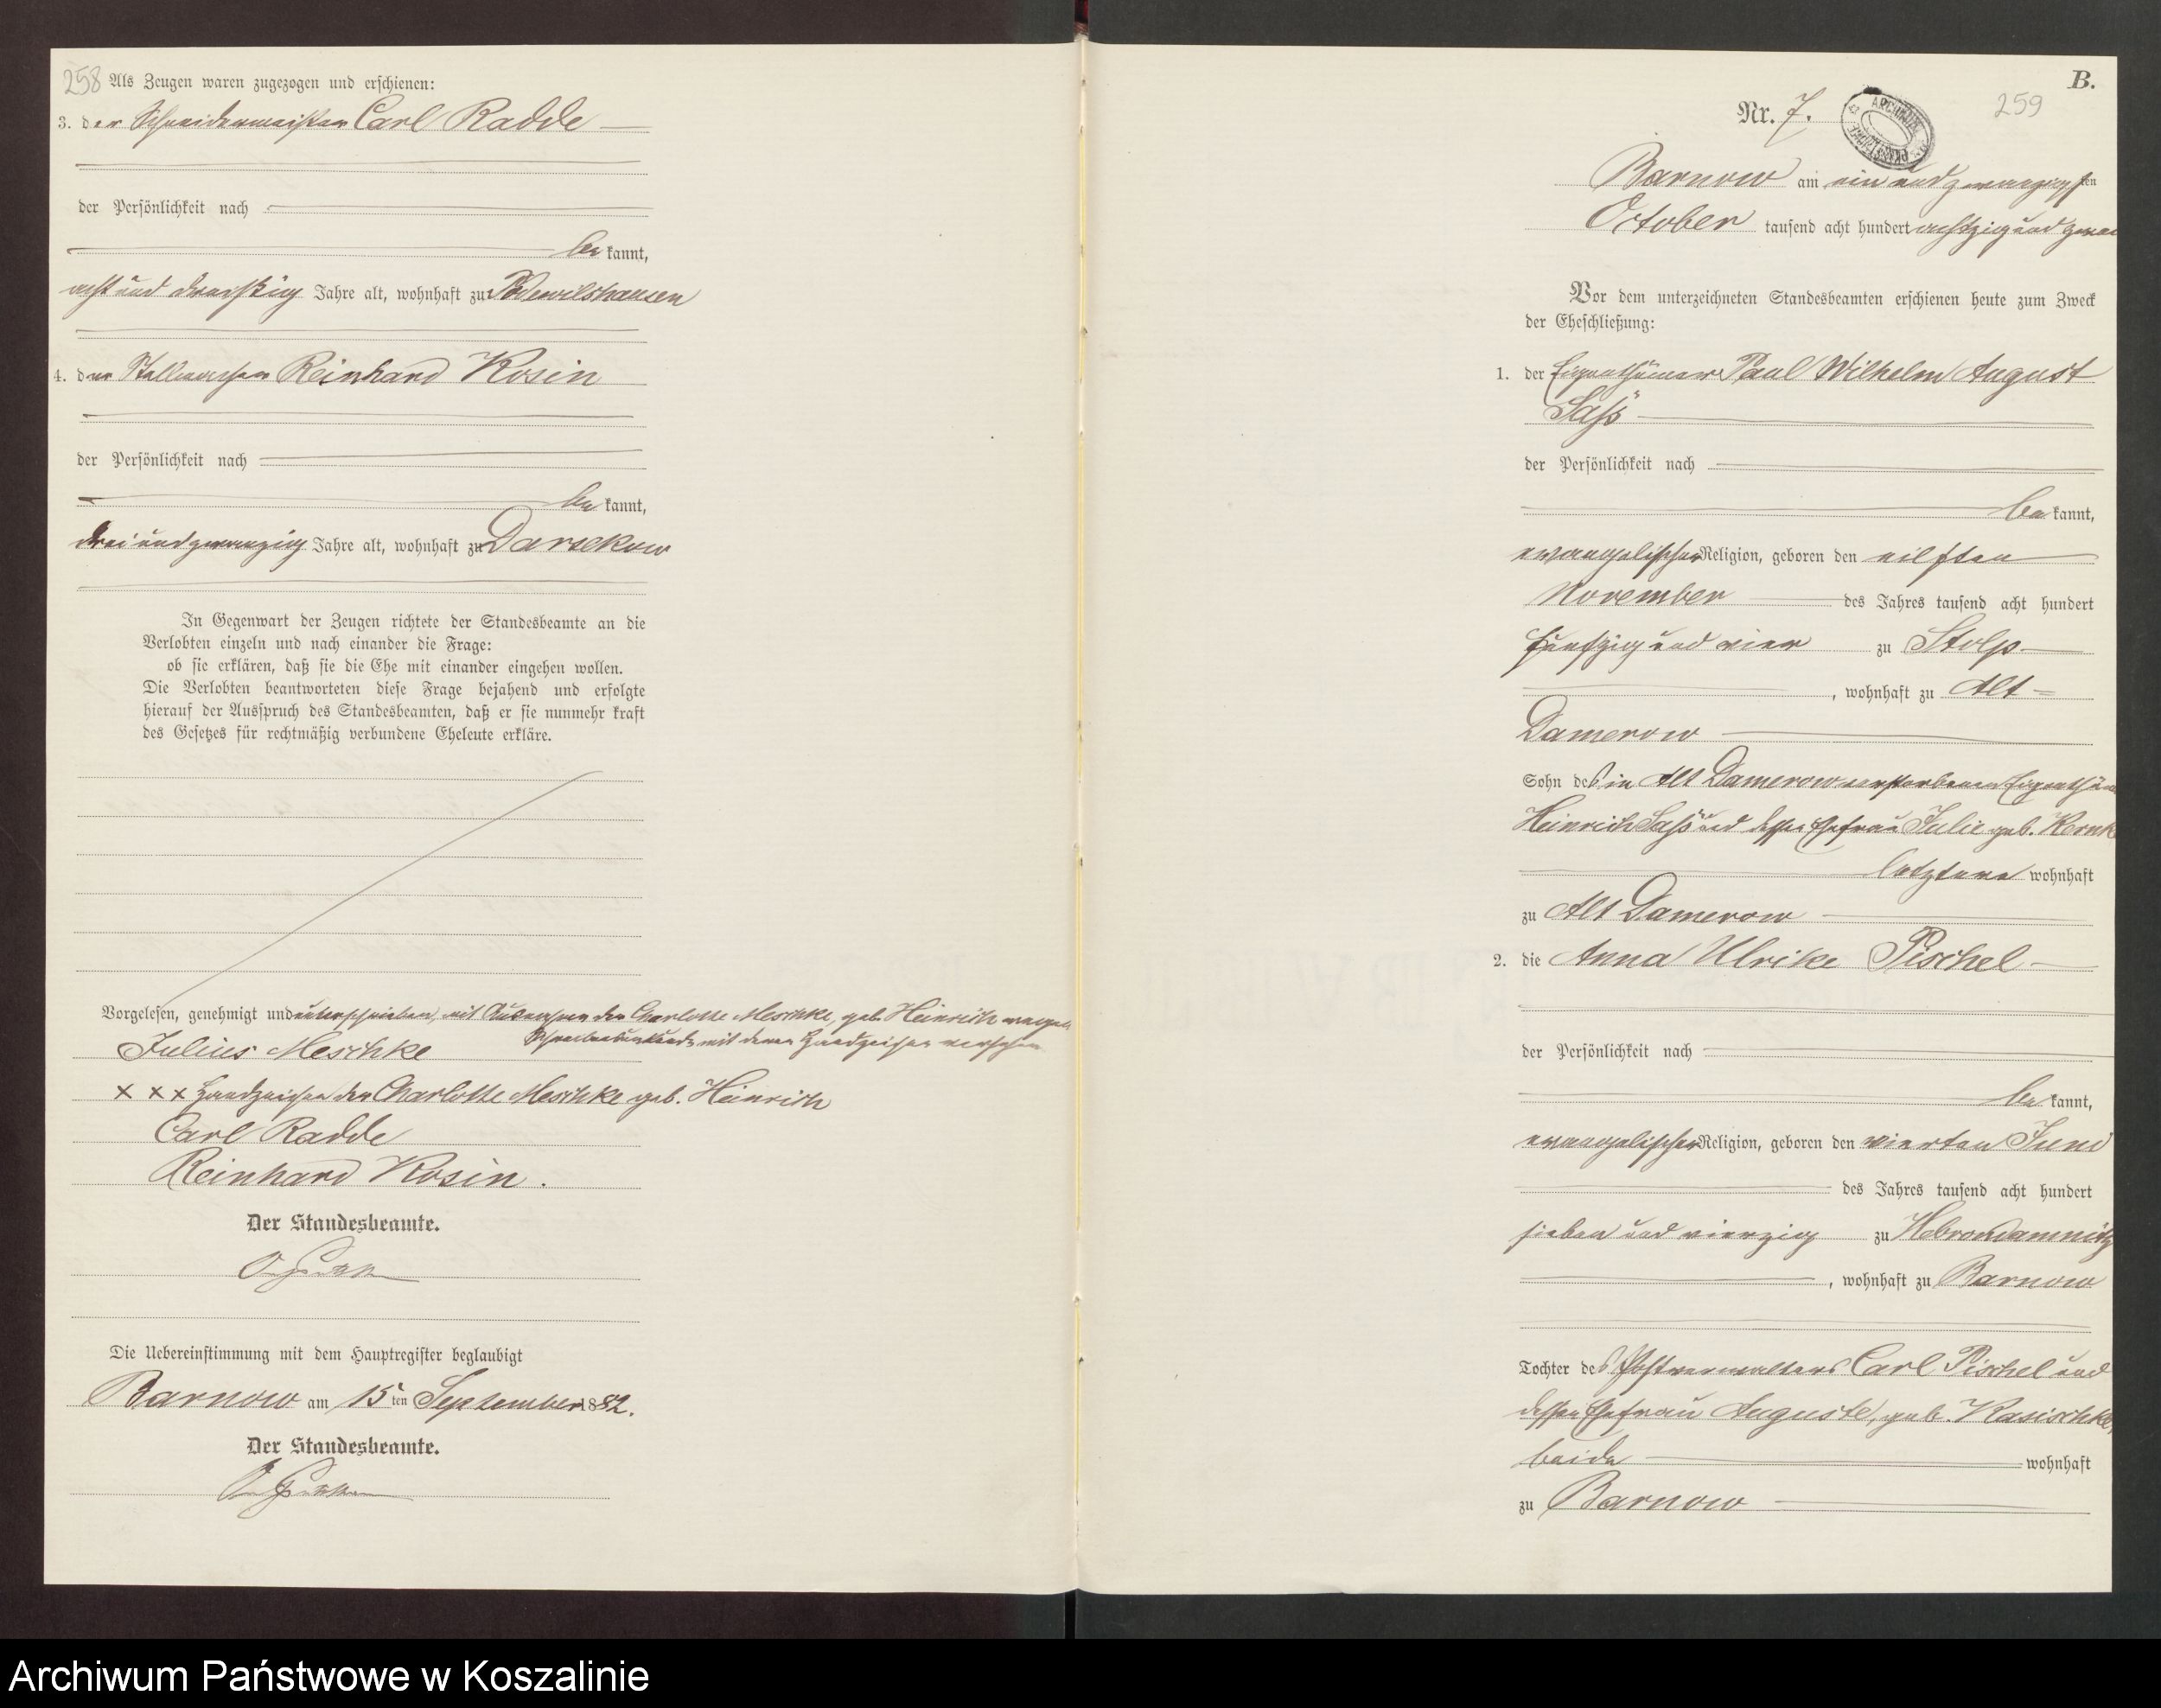 258 Als Zeugen waren zugezogen und erschienen:
3. der Schneidermeister Carl Radde
der Persönlichkeit nach
be kannt,
acht und dreißig Jahre alt, wohnhaft zu Podewilshausen
4. der Stellmacher Reinhard Kosin
der Persönlichkeit nach
be kannt,
drei und zwanzig Jahre alt, wohnhaft zu Darsekow
In Gegenwart der Zeugen richtete der Standesbeamte an die
Verlobten einzeln und nach einander die Frage:
ob sie erklären, daß sie die Ehe mit einander eingehen wollen.
Die Verlobten beantworteten diese Frage bejahend und erfolgte
hierauf der Ausspruch des Standesbeamten, daß er sie nunmehr kraft
des Gesetzes für rechtmäßig verbundene Eheleute erkläre.
Vorgelesen, genehmigt und unterschrieben, mit Ausnahme der Charlotte Meschke, geb. Heinrich wegen
Schreibensunkunde mit deren Handzeichen versehen
Julius Meschke
x x x Handzeichen der Charlotte Meschke geb. Heinrich
Carl Radde
Reinhard Kosin.
Der Standesbeamte.
Die Uebereinstimmung mit dem Hauptregister beglaubigt
Barnow am 15 ten September 1882.
Der Standesbeamte.
B.
259
Nr. 7.
Barnow am ein und zwanzigsten
October tausend acht hundert achtzig und zwei
Vor dem unterzeichneten Standesbeamten erschienen heute zum Zweck
der Eheschließung:
1. der Eigenthümer Paul Wilhelm August
Saß
der Persönlichkeit nach
be kannt,
evangelischer Religion, geboren den eilften
November des Jahres tausend acht hundert
fünfzig und vier zu Stolp
, wohnhaft zu Alt-
Damerow
Sohn des in Alt Damerow verstorbenen Eigenthüm
Heinrich Saß und dessen Ehefrau Julie geb. Kernk
letztere wohnhaft
zu Alt Damerow
2. die Anna Ulrike Pischel
der Persönlichkeit nach
be kannt,
evangelischer Religion, geboren den vierten Juni
des Jahres tausend acht hundert
sieben und vierzig zu Hebrondamnitz
, wohnhaft zu Barnow
Tochter des Postverwalters Carl Pischel und
dessen Ehefrau Auguste, geb. Kasischke,
beide wohnhaft
zu Barnow
Archiwum Państwowe w Koszalinie